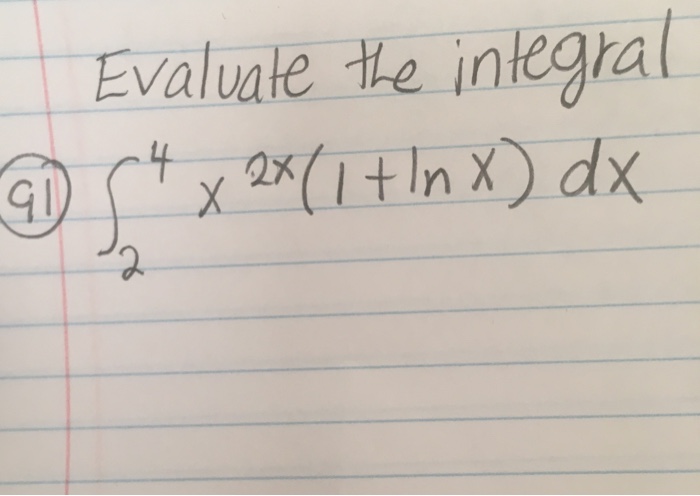 Evaluate the integral
91) ∫₂⁴ x²ˣ(1+ln x) dx